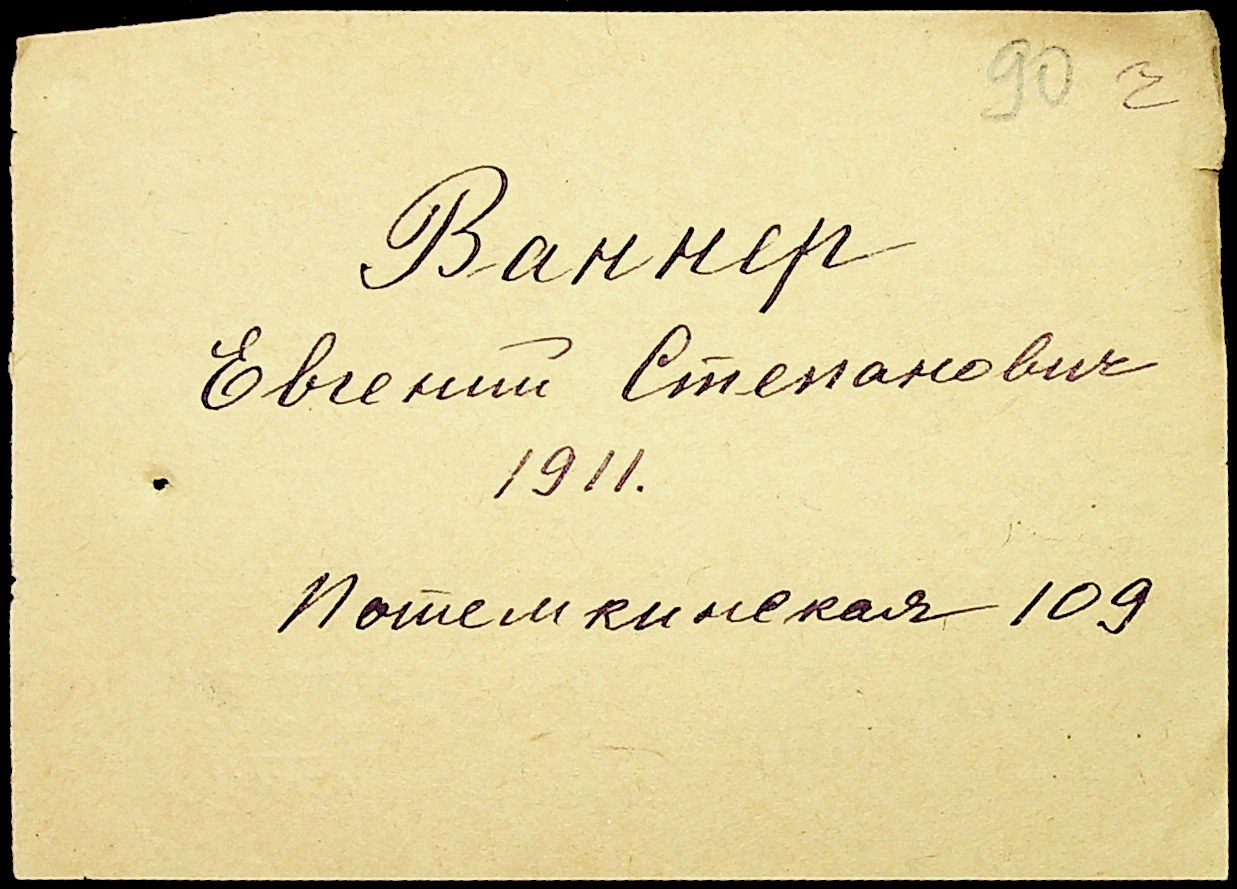 90
Ваннер
Евгений Степанович
1911.
Потемкинская 109